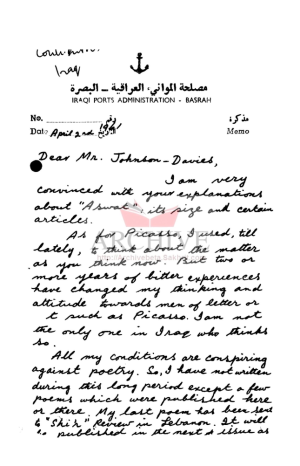 Iraq
مصلحة الموانئ العراقية – البصرة
IRAQI PORTS ADMINISTRATION - BASRAH
No. رقم مذكرة
Date April 2nd. 1961 Memo
Dear Mr. Johnson-Davies,
I am very
convinced with your explanations
about "Aswat", its size and certain
articles.
As for Picasso, I used, till
lately, to think about the matter
as you think now. But two or
more years of bitter experiences
have changed my thinking and
attitude towards men of letter or
such as Picasso. I am not
the only one in Iraq who thinks
so.
All my conditions are conspiring
against poetry. So, I have not written
during this long period except a few
poems which were published here
or there. My last poem has been sent
to "Shi'r" Review in Lebanon. It will
be published in the next issue as
ARCHIVE